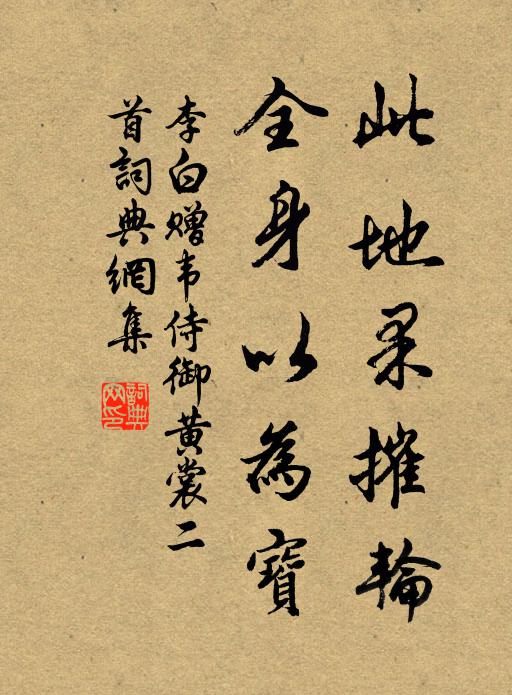 此地果摧輪
全身以為寶
李白赠韦侍御黄裳二
首詞典網集
詞典
网印